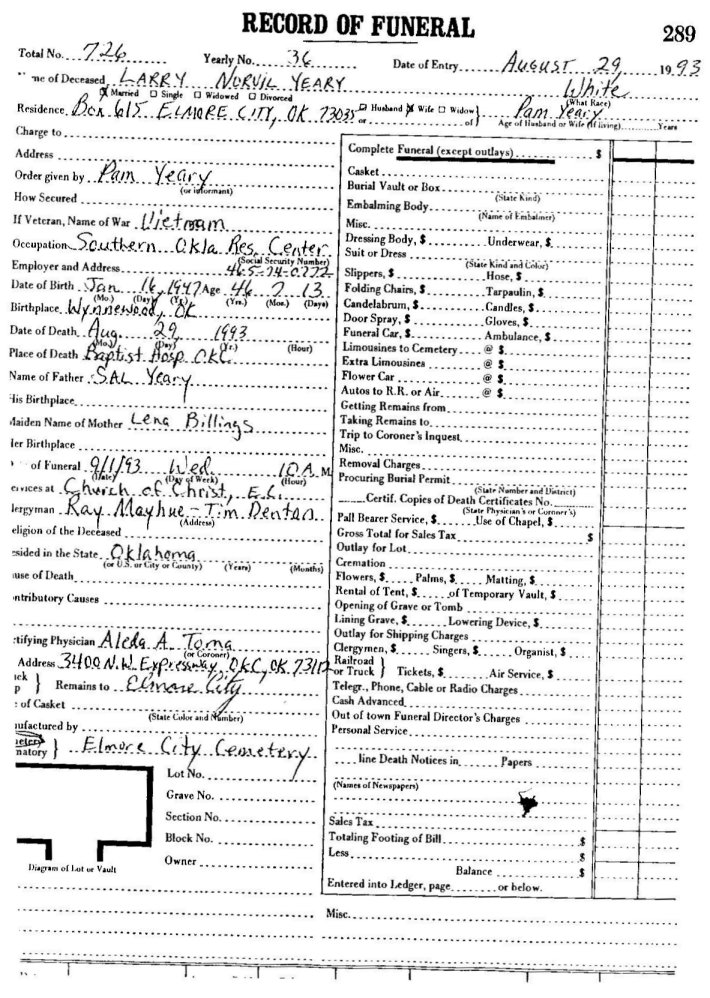 RECORD OF FUNERAL
289
Total No. 726 Yearly No. 36 Date of Entry August 29, 1993
me of Deceased LARRY NORVIL YEARY White
(What Race)
Married Single Widowed Divorced
Residence Box 615 ELMORE CITY, OK 73035 or Husband Wife Widow of Pam Yeary
Age of Husband or Wife (if living) Years
Charge to
Address
Order given by Pam Yeary
(or informant)
How Secured
If Veteran, Name of War Vietnam
Occupation Southern Okla Res. Center
(Social Security Number)
Employer and Address
Date of Birth Jan 16, 1947 Age 46 7 13
(Mo.) (Day) (Yr.) (Yrs.) (Mos.) (Days)
Birthplace Wynnewood, OK
Date of Death Aug. 29, 1993
(Mo.) (Day) (Yr.) (Hour)
Place of Death Baptist Hosp. OKC
Name of Father SAL Yeary
His Birthplace
Maiden Name of Mother Lena Billings
Her Birthplace
of Funeral 9/1/93 Wed. 10 A. M.
(Date) (Day of Week) (Hour)
ervices at Church of Christ, E.C.
lergyman Ray Mayhue - Tim Denton
(Address)
eligion of the Deceased
esided in the State Oklahoma
(or U.S. or City or County) (Years) (Months)
ause of Death
ontributory Causes
rtifying Physician Aleda A. Toma
(or Coroner)
Address 3400 N.W. Expressway, OKC, OK 73112
Remains to Elmore City
of Casket
(State Color and Number)
nufactured by
metery
matory Elmore City Cemetery
Lot No.
Grave No.
Section No.
Block No.
Owner
Diagram of Lot or Vault
Complete Funeral (except outlays) $
Casket
Burial Vault or Box
(State Kind)
Embalming Body
(Name of Embalmer)
Misc.
Dressing Body, $ Underwear, $
Suit or Dress
(State Kind and Color)
Slippers, $ Hose, $
Folding Chairs, $ Tarpaulin, $
Candelabrum, $ Candles, $
Door Spray, $ Gloves, $
Funeral Car, $ Ambulance, $
Limousines to Cemetery @ $
Extra Limousines @ $
Flower Car @ $
Autos to R.R. or Air @ $
Getting Remains from
Taking Remains to
Trip to Coroner's Inquest
Misc.
Removal Charges
Procuring Burial Permit
(State Number and District)
Certif. Copies of Death Certificates No.
(State Physician's or Coroner's)
Pall Bearer Service, $ Use of Chapel, $
Gross Total for Sales Tax $
Outlay for Lot
Cremation
Flowers, $ Palms, $ Matting, $
Rental of Tent, $ of Temporary Vault, $
Opening of Grave or Tomb
Lining Grave, $ Lowering Device, $
Outlay for Shipping Charges
Clergymen, $ Singers, $ Organist, $
Railroad
or Truck Tickets, $ Air Service, $
Telegr., Phone, Cable or Radio Charges
Cash Advanced
Out of town Funeral Director's Charges
Personal Service
line Death Notices in Papers
(Names of Newspapers)
Sales Tax
Totaling Footing of Bill $
Less $
Balance $
Entered into Ledger, page or below.
Misc.